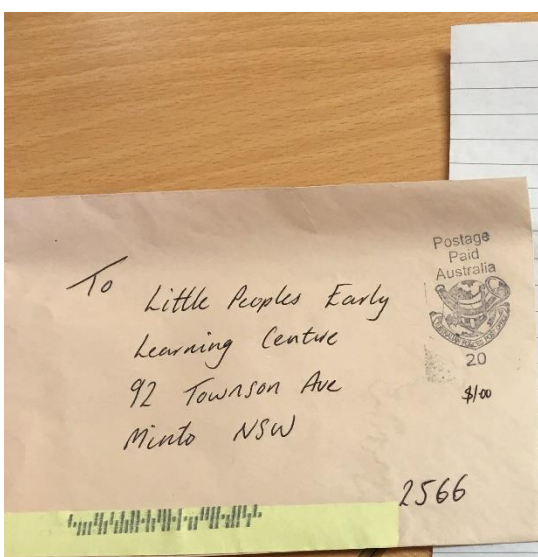 Postage
Paid
Australia
20
$1.00
To
Little Peoples Early
Learning Centre
92 Townson Ave
Minto NSW
2566